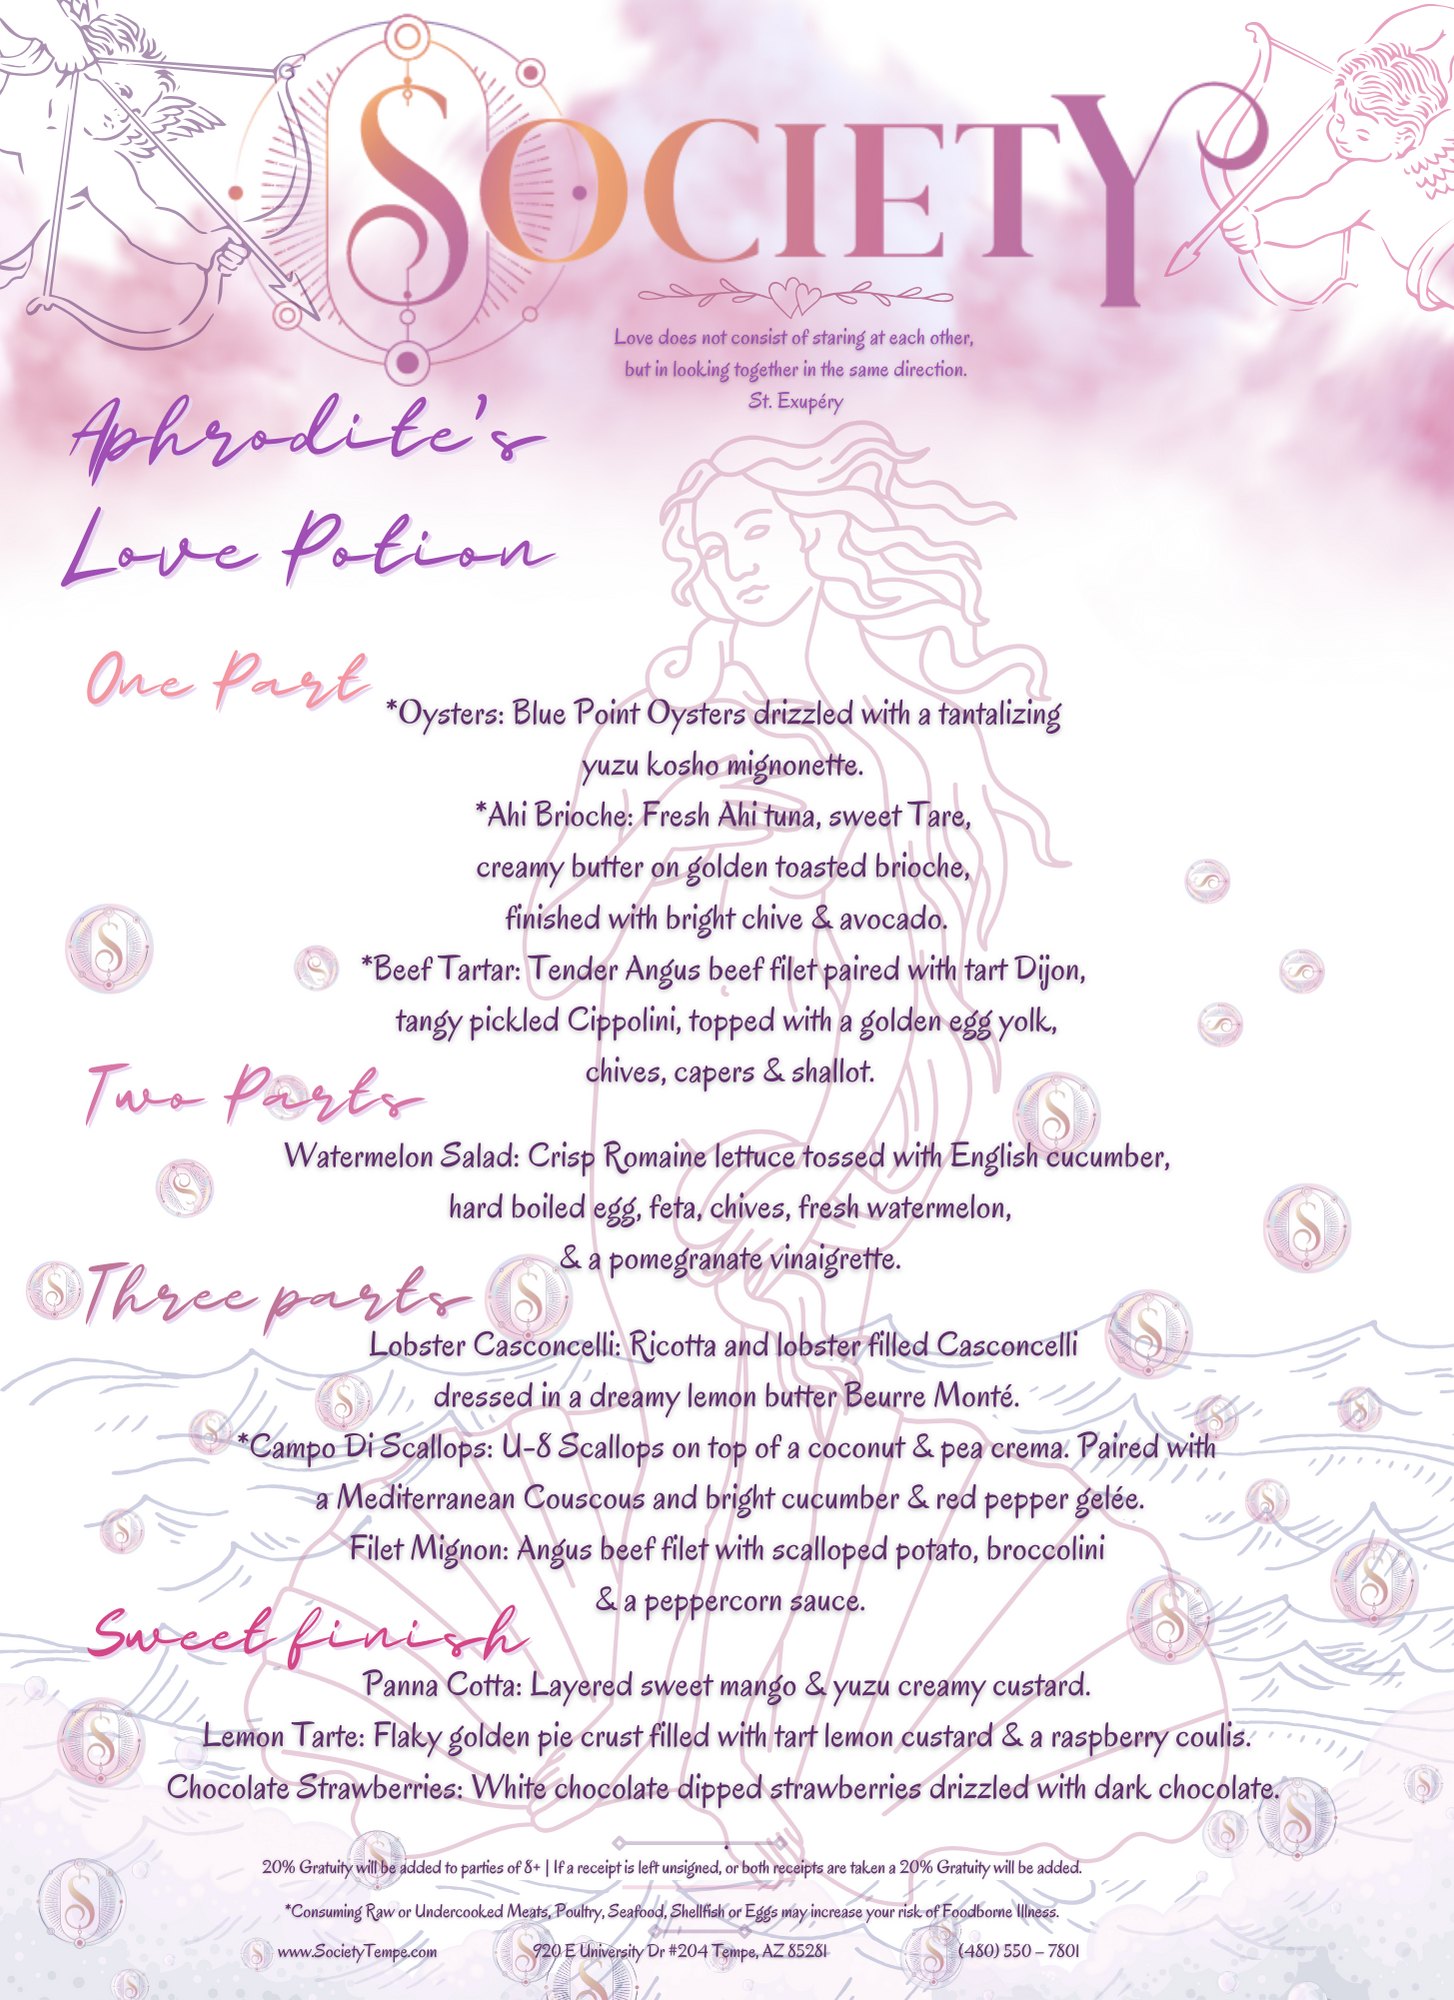 SOCIETY
Love does not consist of staring at each other,
but in looking together in the same direction.
St. Exupéry
Aphrodite's
Love Potion
One Part
*Oysters: Blue Point Oysters drizzled with a tantalizing
yuzu kosho mignonette.
*Ahi Brioche: Fresh Ahi tuna, sweet Tare,
creamy butter on golden toasted brioche,
finished with bright chive & avocado.
*Beef Tartar: Tender Angus beef filet paired with tart Dijon,
tangy pickled Cippolini, topped with a golden egg yolk,
chives, capers & shallot.
Two Parts
Watermelon Salad: Crisp Romaine lettuce tossed with English cucumber,
hard boiled egg, feta, chives, fresh watermelon,
& a pomegranate vinaigrette.
Three parts
Lobster Casconcelli: Ricotta and lobster filled Casconcelli
dressed in a dreamy lemon butter Beurre Monté.
*Campo Di Scallops: U-8 Scallops on top of a coconut & pea crema. Paired with
a Mediterranean Couscous and bright cucumber & red pepper gelée.
Filet Mignon: Angus beef filet with scalloped potato, broccolini
& a peppercorn sauce.
Sweet finish
Panna Cotta: Layered sweet mango & yuzu creamy custard.
Lemon Tarte: Flaky golden pie crust filled with tart lemon custard & a raspberry coulis.
Chocolate Strawberries: White chocolate dipped strawberries drizzled with dark chocolate.
20% Gratuity will be added to parties of 8+ | If a receipt is left unsigned, or both receipts are taken a 20% Gratuity will be added.
*Consuming Raw or Undercooked Meats, Poultry, Seafood, Shellfish or Eggs may increase your risk of Foodborne Illness.
www.SocietyTempe.com 920 E University Dr #204 Tempe, AZ 85281 (480) 550 – 7801